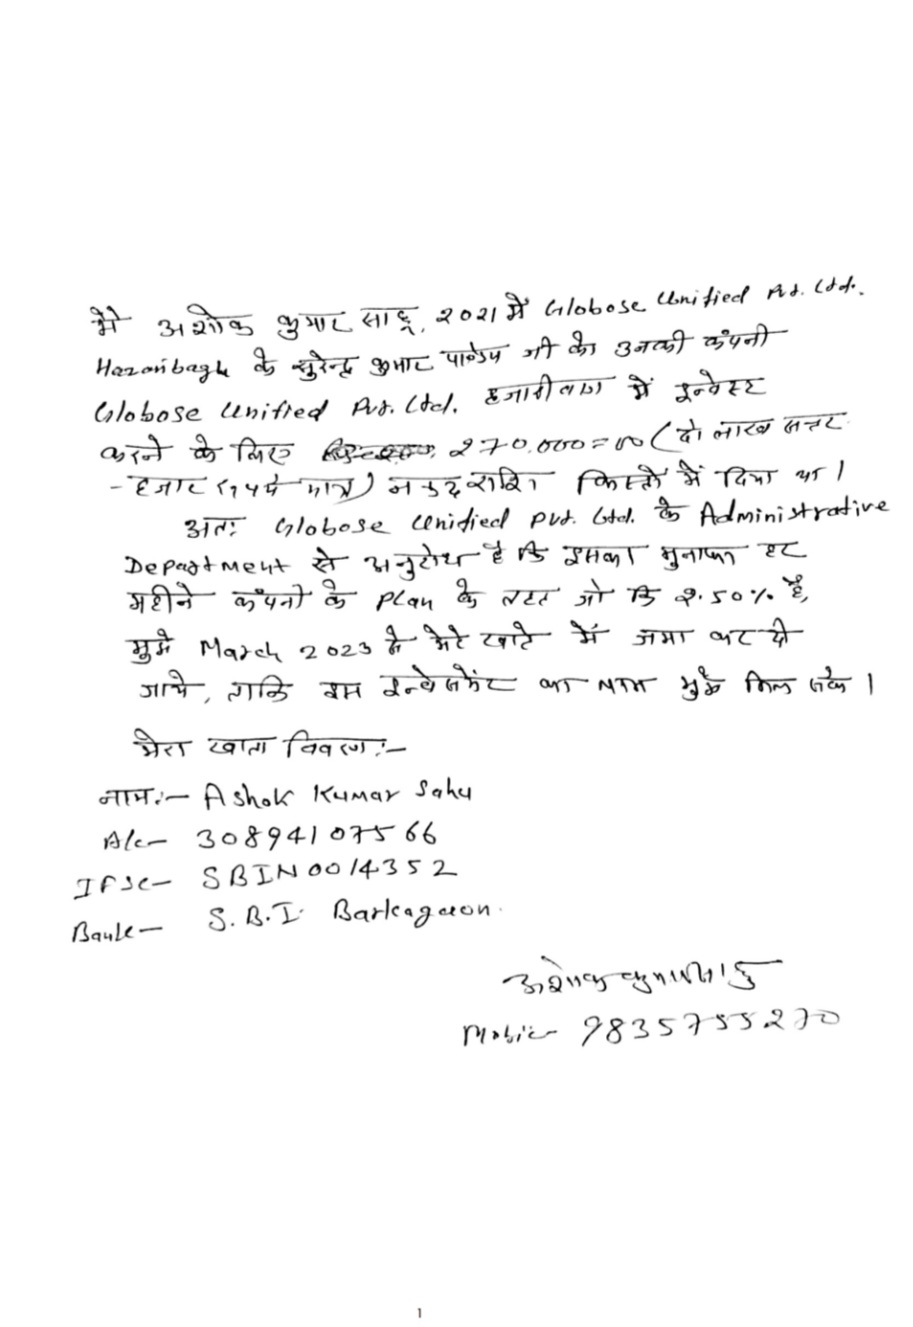 मैं अशोक कुमार साहू, 2021 में Globose Unified Pvt. Ltd.
Hazaribagh के सुरेन्द्र कुमार पाण्डेय जी को उनकी कंपनी
Globose Unified Pvt. Ltd. हजारीबाग में इन्वेस्ट
करने के लिए 270.000=00 (दो लाख सत्तर
-हजार रुपये मात्र) नकद राशि किस्तों में दिया था।
अतः Globose Unified Pvt. Ltd. के Administrative
Department से अनुरोध है कि इसका मुनाफा हर
महीने कंपनी के Plan के तहत जो कि 2.50% है,
मुझे March 2023 से मेरे खाते में जमा कर दी
जाये, ताकि इस इन्वेस्टमेंट का लाभ मुझे मिल सके।
मेरा खाता विवरण:-
नाम:- Ashok Kumar Sahu
A/c- 30894107566
IFSC- SBIN0014352
Bank- S.B.I. Barkagaon.
अशोक कुमार साहु
Mobile- 9835755270
1